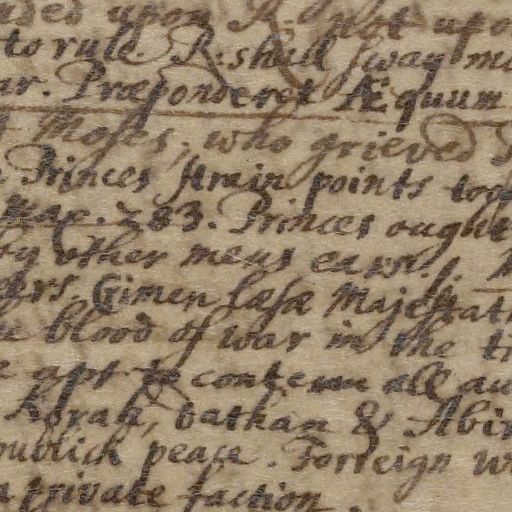 upon R. not upo
to rule. R. shall sway mo
ar. Præponderet Æquum
Moses, who grieved
Princes strain points too
Max. 283. Princes ought
by other mens ears.
ers, Crimen læsæ Majestat
blood of war in the ti
apt to contemn all au
Korah, Dathan & Abir
publick peace. Forreign w
a private faction.